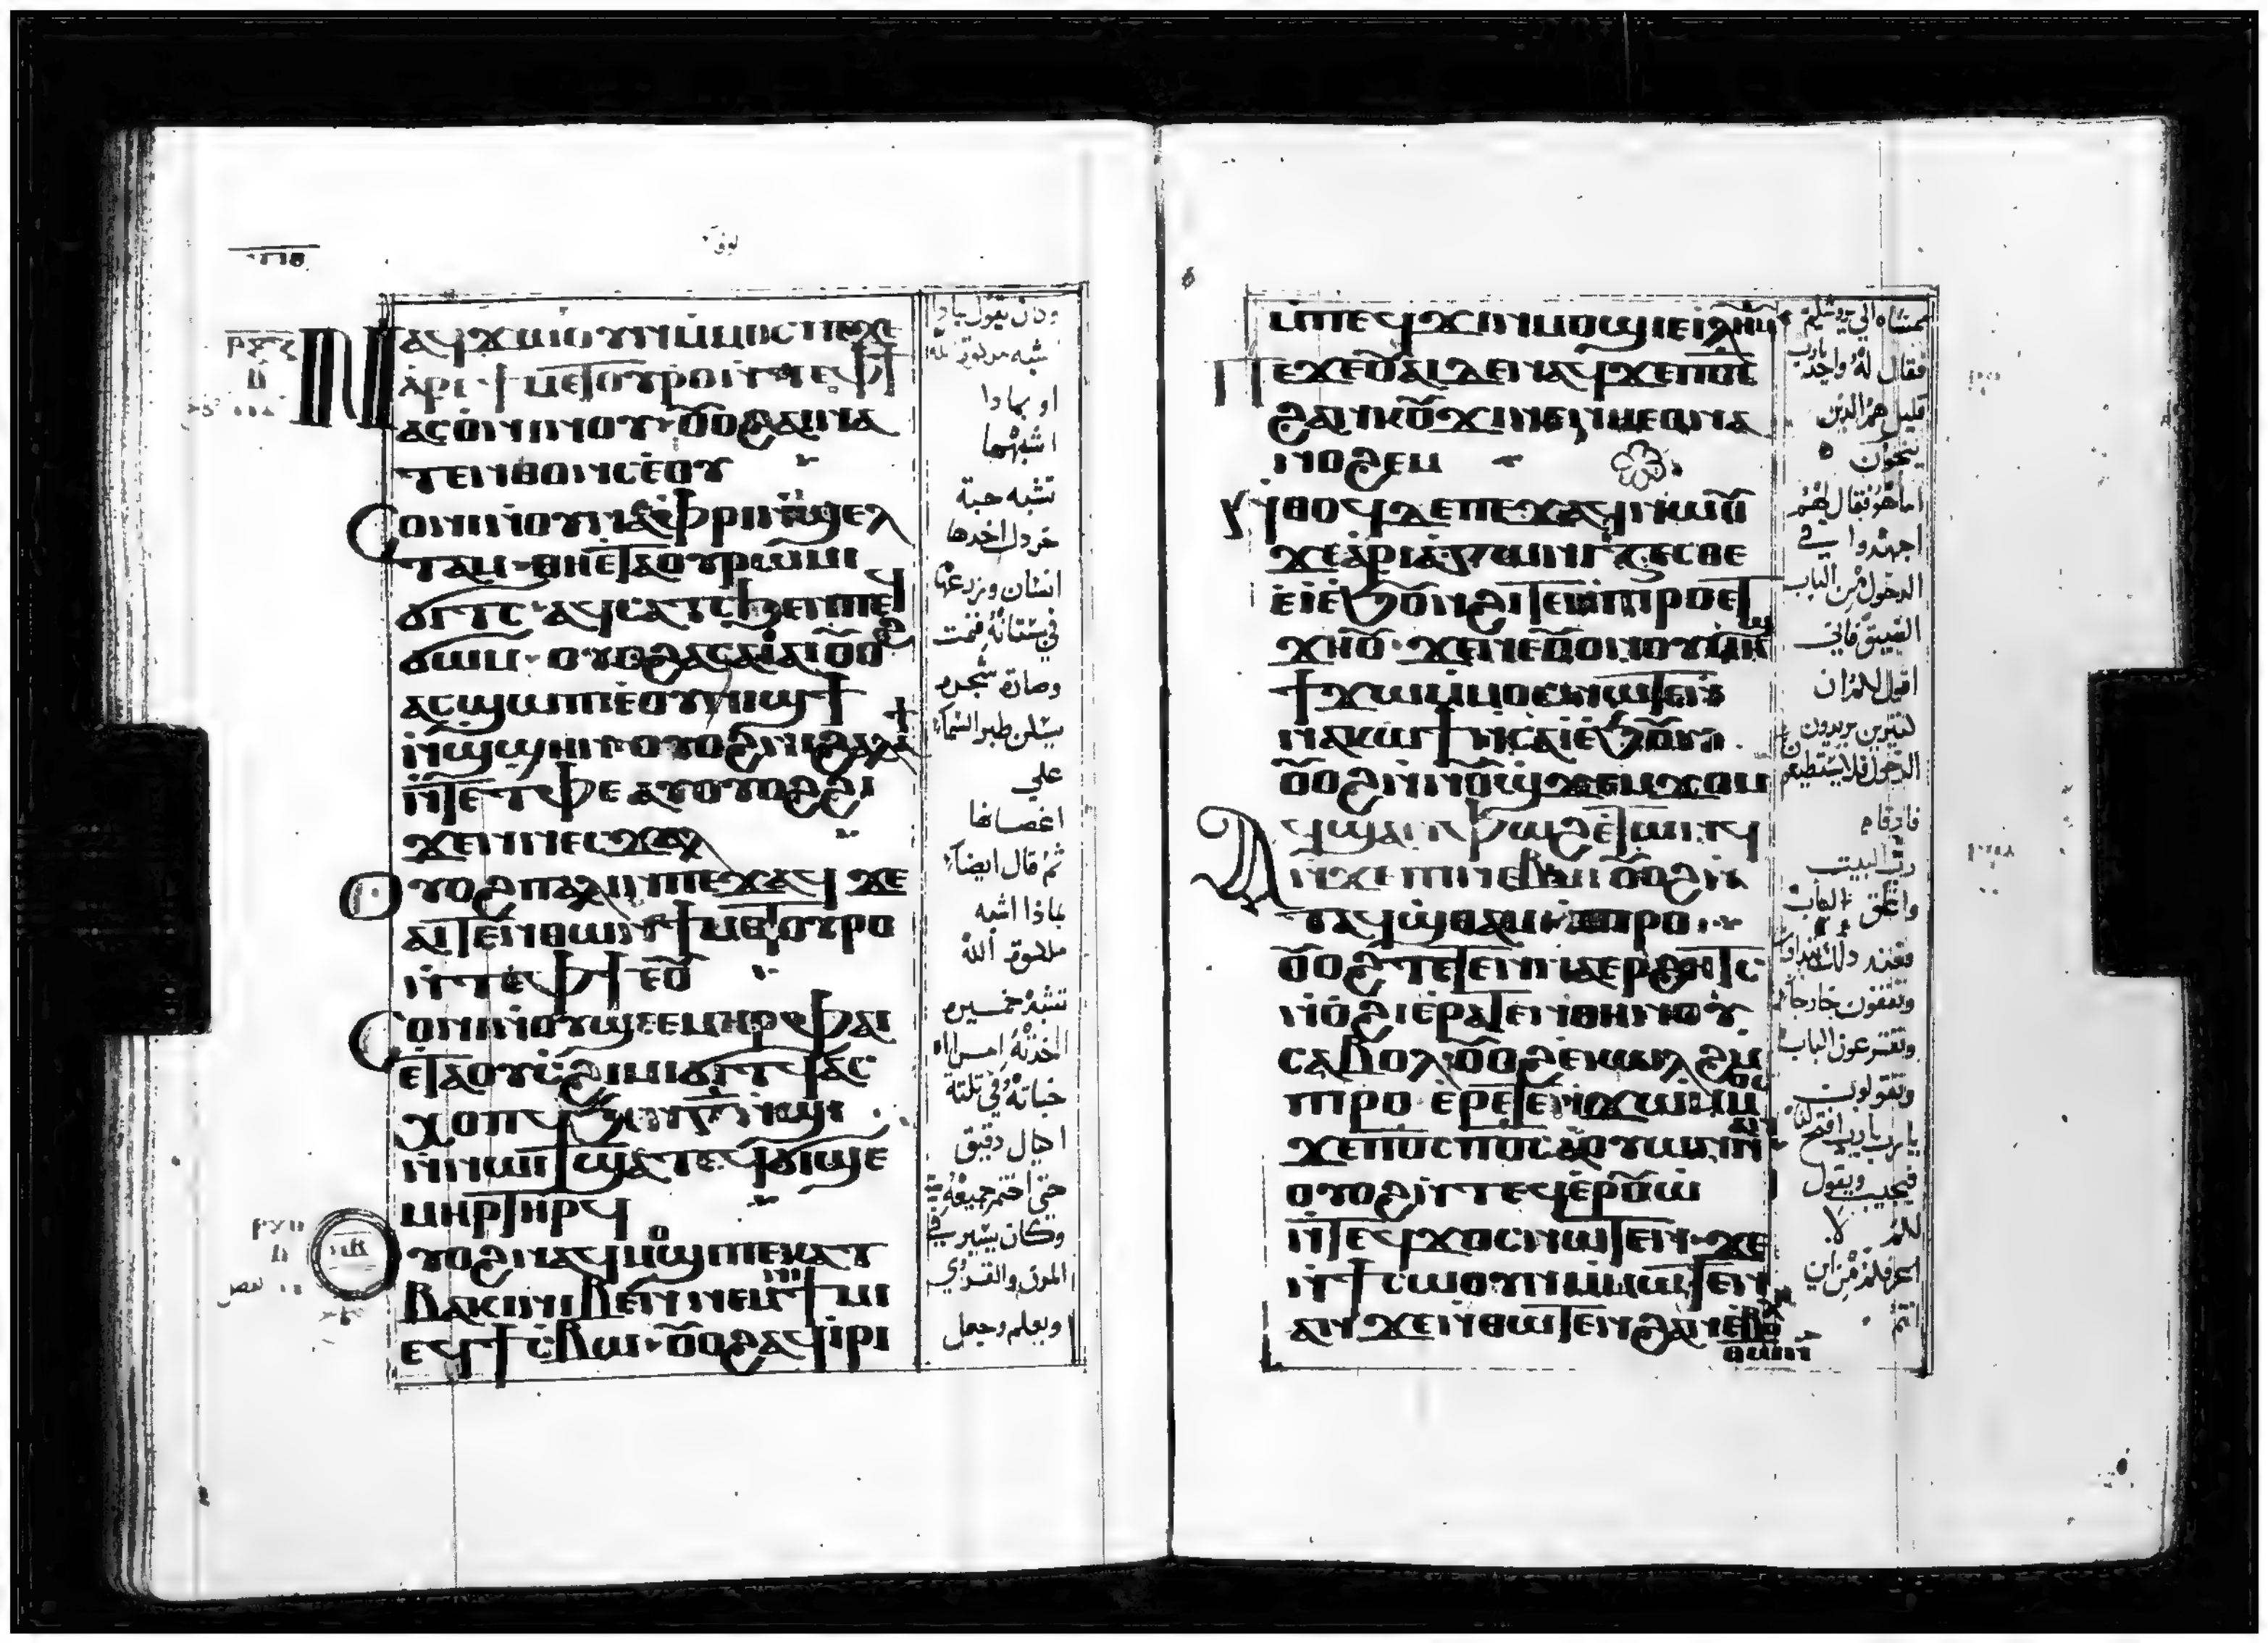 ⲛⲁϥϫⲱ ⲟⲩⲛ ⲙ̀ⲙⲟⲥ ⲡⲉ ϫⲉ
ⲁⲣⲉ ϯⲙⲉⲧⲟⲩⲣⲟ ⲛ̀ⲧⲉ ⲫϯ
ⲟ̀ⲛⲓ ⲛ̀ⲟⲩ ⲟⲩⲟϩ ⲁⲓⲛⲁ
ⲧⲉⲛⲑⲱⲛⲥ ⲉ̀ⲟⲩ
ⲥⲟ̀ⲛⲓ ⲛ̀ⲟⲩⲛⲁⲫⲣⲓ ⲛ̀ϣⲉⲗ
ⲧⲁⲙ ⲑⲏⲉ̀ⲧⲁⲟⲩⲣⲱⲙⲓ
ϭⲓⲧⲥ ⲁϥⲥⲁⲧⲥ ϧⲉⲛ ⲡⲉϥ
ϭⲱⲙ ⲟⲩⲟϩ ⲁⲥⲁⲓⲁⲓ ⲟⲩⲟϩ
ⲁⲥϣⲱⲡⲓ ⲉ̀ⲟⲩⲛⲓϣϯ
ⲛ̀ϣϣⲏⲛ ⲟⲩⲟϩ ⲛⲓϩⲁⲗⲁϯ
ⲛ̀ⲧⲉ ⲧⲫⲉ ⲁⲩⲟⲩⲟϩ ϩⲓ
ϫⲉⲛ ⲛⲉⲥϫⲁⲗ
ⲟⲩⲟϩ ⲡⲁⲗⲓⲛ ⲡⲉϫⲁϥ ϫⲉ
ⲁⲓⲧⲉⲛⲑⲱⲛ ϯⲙⲉⲧⲟⲩⲣⲟ
ⲛ̀ⲧⲉ ⲫϯ ⲉ̀ⲟⲩ
ⲥⲟ̀ⲛⲓ ⲛ̀ⲟⲩϣⲉⲙⲏⲣ ⲫⲁⲓ
ⲉ̀ⲧⲁⲟⲩⲥϩⲓⲙⲓ ϭⲓⲧϥ ⲁⲥ
ⲭⲟⲡϥ ϧⲉⲛ ⲅ̅ ⲛ̀ϣⲓ
ⲛ̀ⲛⲱⲓⲧ ϣⲁⲧⲉϥϭⲓϣⲉ
ⲙⲏⲣ ⲧⲏⲣϥ
ⲟⲩⲟϩ ⲛⲁϥⲙⲟϣⲓ ⲡⲉ ⲕⲁⲧⲁ
ⲃⲁⲕⲓ ⲛⲓⲃⲉⲛ ⲛⲉⲙ ϯⲙⲓ
ⲉϥϯⲥⲃⲱ ⲟⲩⲟϩ ⲁϥⲓⲣⲓ
وكان يقول بماذا
تشبه ملكوت الله
او بماذا
اشبهها
تشبه حبة
خردل اخذها
انسان وزرعها
في بستانه فنمت
وصارت شجره
يسكن طير السماء
علي
اغصانها
ثم قال ايضا
بماذا اشبه
ملكوت الله
تشبه خميره
اخذتها امراه
خباته في ثلثة
اكيال دقيق
حتي اختمر جميعه
وكان يسير في
المدن والقري
ويعلم وجعل
ⲙ̀ⲡⲉϥϫⲓⲛⲙⲟϣⲓ ⲉ̀ⲓⲗⲏⲙ
ⲡⲉϫⲉ ⲟⲩⲁⲓ ⲇⲉ ⲛⲁϥ ϫⲉ ⲡⲟ̅ⲥ̅
ϩⲁⲛⲕⲟⲩϫⲓ ⲛⲉ ⲛⲏⲉⲑⲛⲁ
ⲛⲟϩⲉⲙ
ⲛ̀ⲑⲟϥ ⲇⲉ ⲡⲉϫⲁϥ ⲛⲱⲟⲩ
ϫⲉ ⲁⲣⲓⲁ̀ⲅⲱⲛⲓⲍⲉⲥⲑⲉ
ⲉ̀ⲓ ⲉ̀ϧⲟⲩⲛ ϩⲓⲧⲉⲛ ⲡⲓⲣⲟ ⲉⲧ
ϫⲏⲟⲩ ϫⲉ ⲟⲩⲟⲛ ⲟⲩⲙⲏϣ
ϯϫⲱ ⲙ̀ⲙⲟⲥ ⲛⲱⲧⲉⲛ
ⲛⲁⲕⲱϯ ⲛ̀ⲥⲁ ⲓ̀ ⲉ̀ϧⲟⲩⲛ
ⲟⲩⲟϩ ⲛ̀ⲛⲟⲩϣϫⲉⲙϫⲟⲙ
ⲁϥϣⲁⲛⲫⲟϩ ⲉ̀ⲧⲱⲛϥ
ⲛ̀ϫⲉ ⲡⲓⲛⲉⲃⲏⲓ ⲟⲩⲟϩ ⲛ̀
ⲧⲉϥϣⲑⲁⲙ ⲙ̀ⲡⲓⲣⲟ
ⲟⲩⲟϩ ⲧⲉⲧⲉⲛⲛⲁⲉⲣϩⲏⲧⲥ
ⲛ̀ⲟ̀ϩⲓ ⲉ̀ⲣⲁⲧⲉⲛ ⲑⲏⲛⲟⲩ
ⲥⲁⲃⲟⲗ ⲟⲩⲟϩ ⲉ̀ⲕⲱⲗϩ ⲙ̀
ⲡⲓⲣⲟ ⲉ̀ⲣⲉⲧⲉⲛϫⲱ ⲙ̀ⲙⲟⲥ
ϫⲉ ⲡⲟ̅ⲥ̅ ⲡⲟ̅ⲥ̅ ⲁⲟⲩⲱⲛ ⲛⲁⲛ
ⲟⲩⲟϩ ⲛ̀ⲧⲉϥⲉⲣⲟⲩⲱ̀
ⲛ̀ⲧⲉϥϫⲟⲥ ⲛⲱⲧⲉⲛ ϫⲉ
ⲛ̀ϯⲥⲱⲟⲩⲛ ⲙ̀ⲙⲱⲧⲉⲛ
ⲁⲛ ϫⲉ ⲛ̀ⲑⲱⲧⲉⲛ ϩⲁⲛ ⲉ̀ⲃⲟⲗ
ⲑⲱⲛ
ممشاه الي يروشليم
فقال له واحد يارب
قليل هم الذين
ينجون
اما هو فقال لهم
اجهدوا في
الدخول من الباب
الضيق فاني
اقول لكم ان
كثيرين يريدون
الدخول فلا يستطيعون
فاذا قام
رب البيت
واغلق الباب
وتقفون خارجا
وتقرعون الباب
وتقولون
يارب يارب افتح لنا
فيجيب ويقول
لكم لا
اعرفكم من اين
انتم